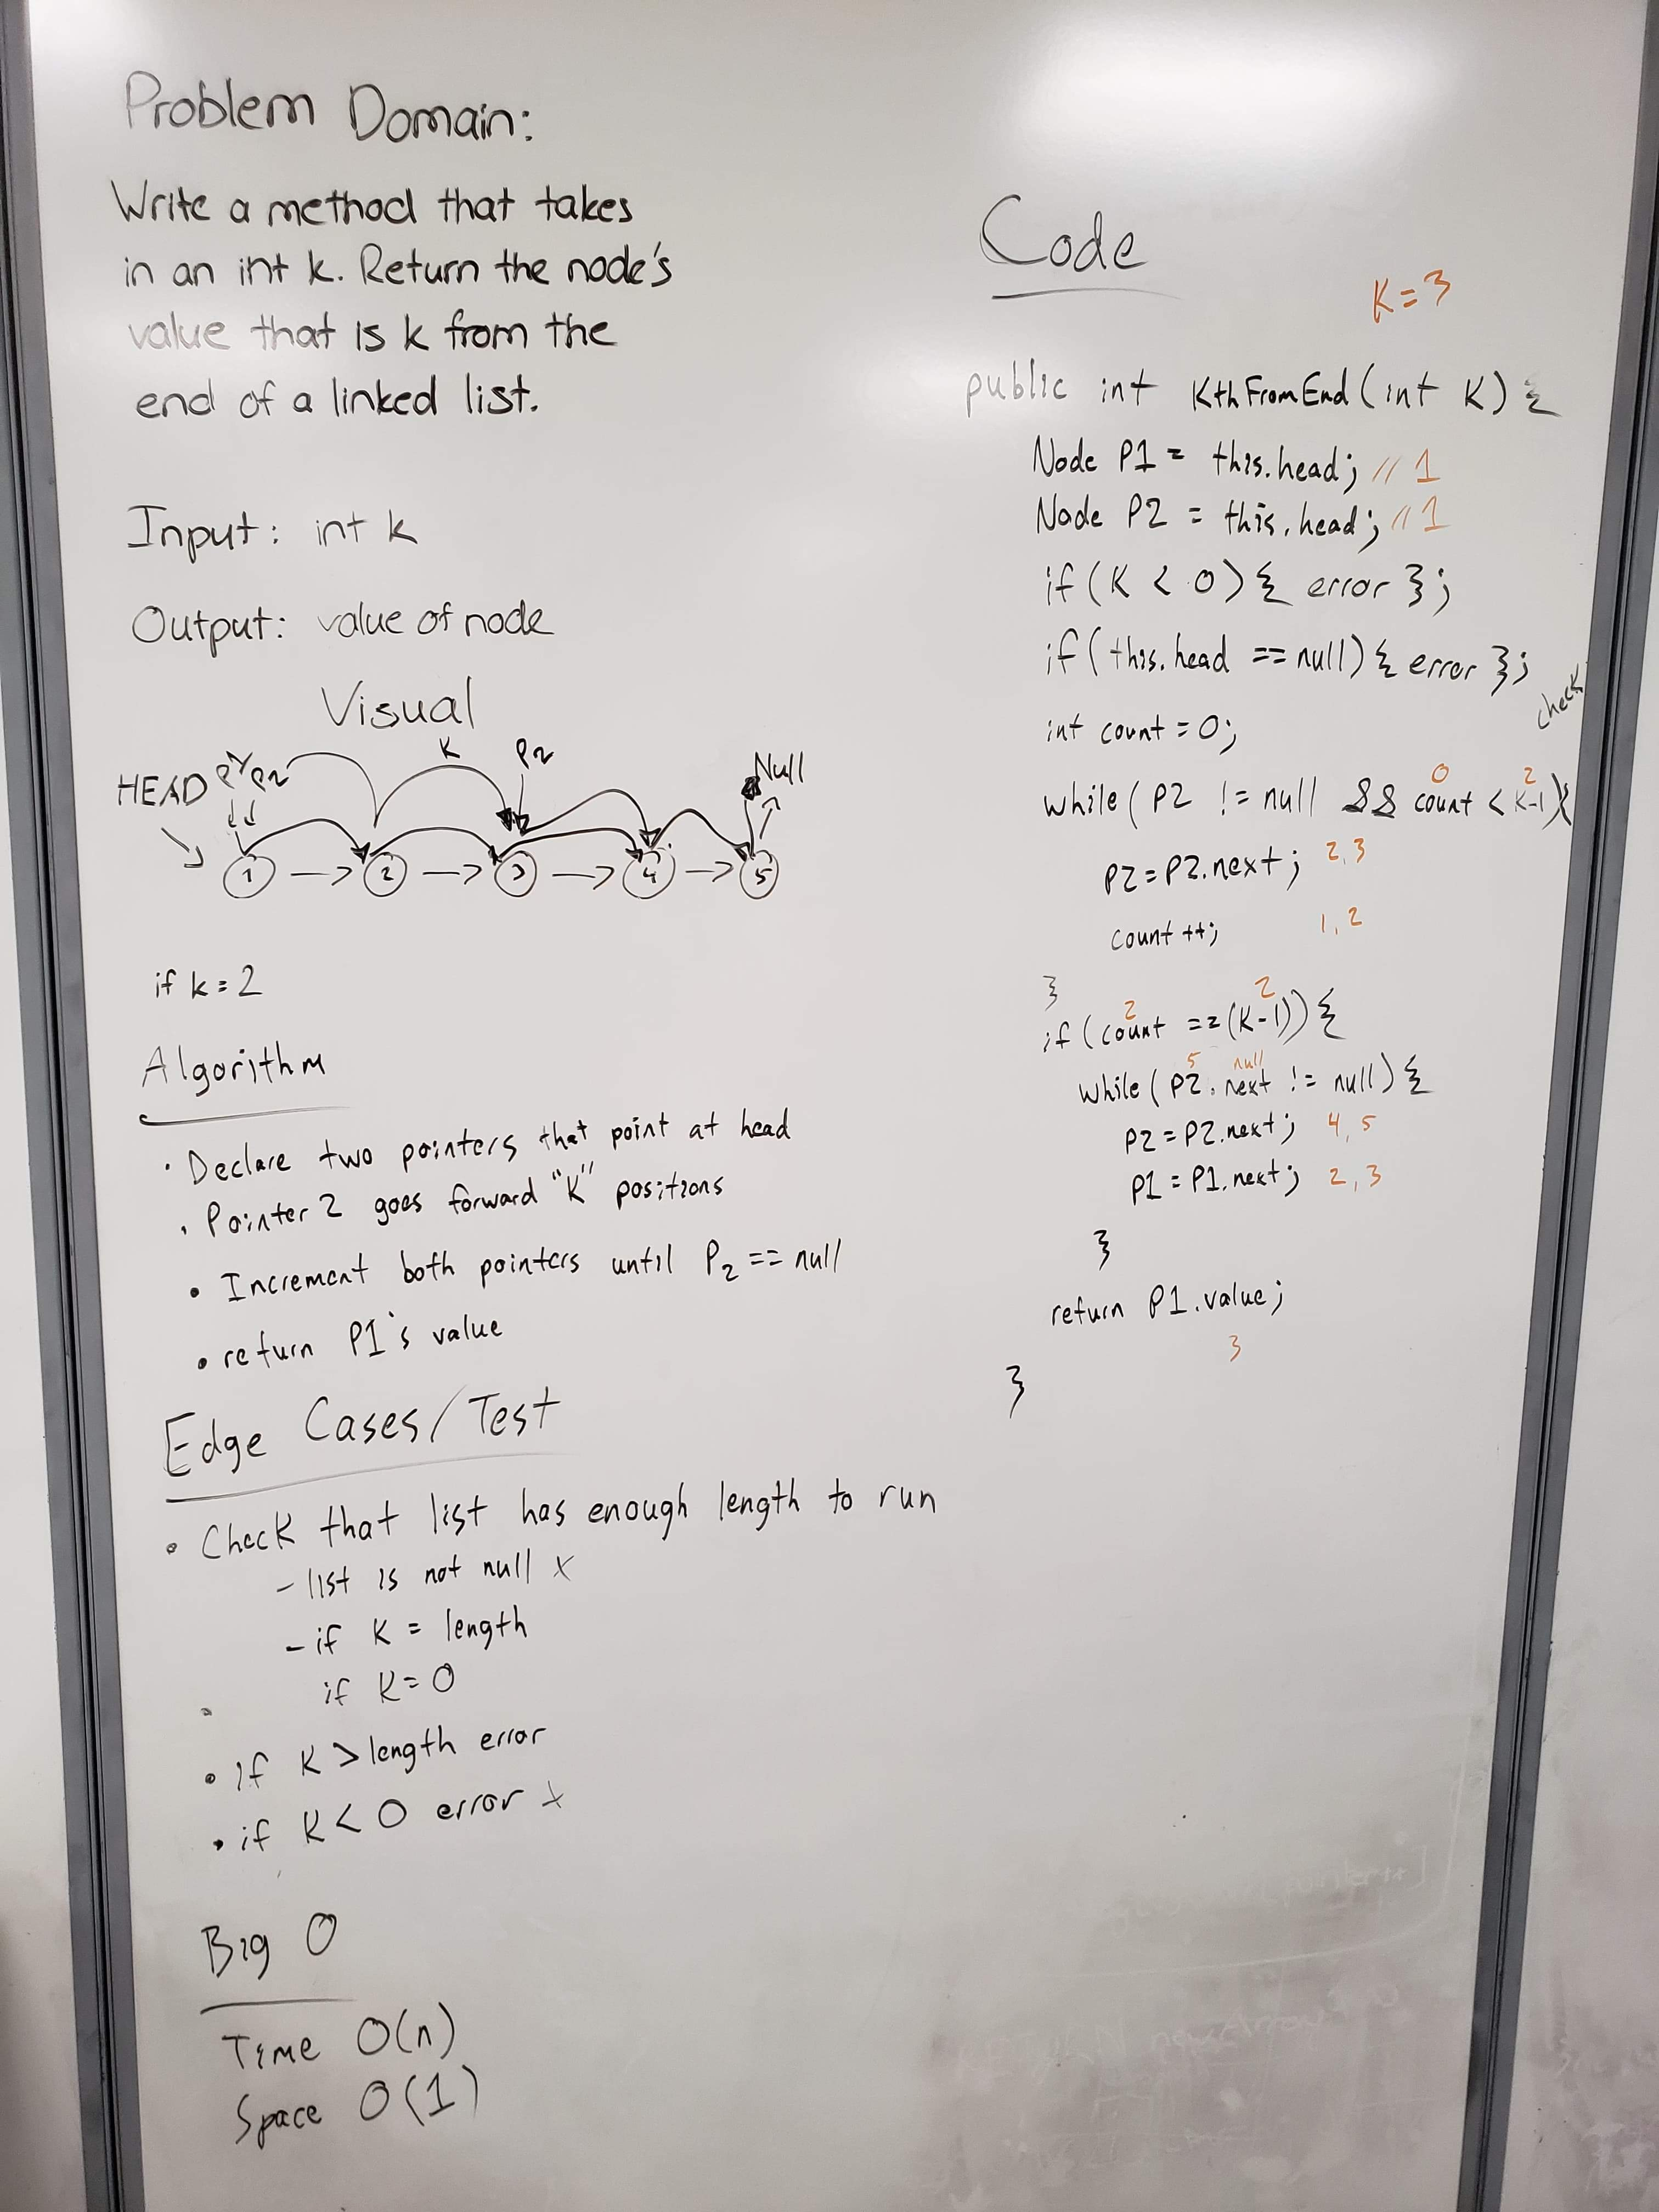 Problem Domain:
Write a method that takes
in an int k. Return the node's
value that is k from the
end of a linked list.
Input: int k
Output: value of node
Visual
K
P2
Null
HEAD
P2
1
2
3
4
5
if k = 2
Algorithm
• Declare two pointers that point at head
• Pointer 2 goes forward "K" positions
• Increment both pointers until P2 == null
• return P1's value
Edge Cases/Test
• Check that list has enough length to run
- list is not null x
- if K = length
• if K = 0
• if K > length error
• if K < 0 error x
Big O
Time O(n)
Space O(1)
Code
K = 3
public int KthFromEnd(int K) {
Node P1 = this.head; // 1
Node P2 = this.head; // 1
if (K < 0) { error };
if (this.head == null) { error };
check
int count = 0;
0 2
while (P2 != null && count < K-1){
P2 = P2.next; 2, 3
count ++; 1, 2
}
2 2
if (count == (K-1)) {
5 null
while (P2.next != null) {
P2 = P2.next; 4, 5
P1 = P1.next; 2, 3
}
return P1.value;
3
}